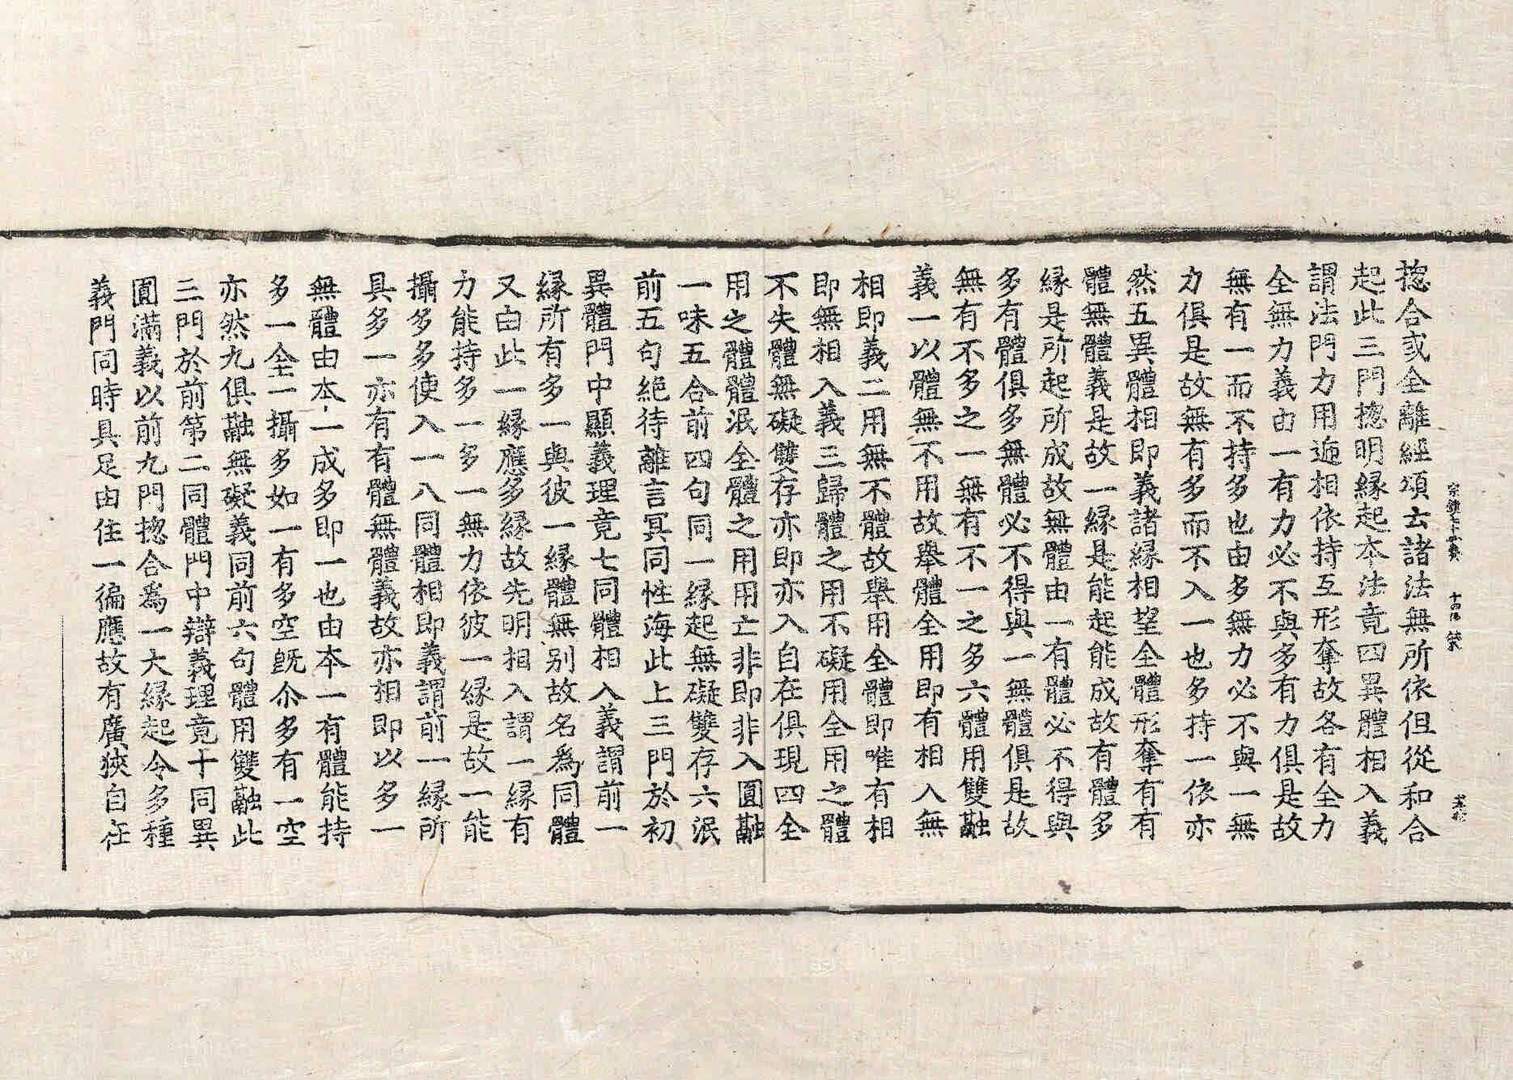 揔合或全離經頌云諸法無所依但從和合
起此三門揔明縁起本法竟四異體相入義
謂法門力用遞相依持互形奪故各有全力
全無力義由一有力必不與多有力俱是故
無有一而不持多也由多無力必不與一無
力俱是故無有多而不入一也多持一依亦
然五異體相即義諸縁相望全體形奪有有
體無體義是故一縁是能起能成故有體多
縁是所起所成故無體由一有體必不得與
多有體俱多無體必不得與一無體俱是故
無有不多之一無有不一之多六體用雙融
義一以體無不用故舉體全用即有相入無
相即義二用無不體故舉用全體即唯有相
即無相入義三歸體之用不礙用全用之體
不失體無礙雙存亦即亦入自在俱現四全
用之體體泯全體之用用亡非即非入圓融
一味五合前四句同一縁起無礙雙存六泯
前五句絶待離言冥同性海此上三門於初
異體門中顯義理竟七同體相入義謂前一
縁所有多一與彼一縁體無别故名爲同體
又由此一縁應多縁故先明相入謂一縁有
力能持多一多一無力依彼一縁是故一能
攝多多便入一八同體相即義謂前一縁所
具多一亦有有體無體義故亦相即以多一
無體由本一成多即一也由本一有體能持
多一全一攝多如一有多空既尒多有一空
亦然九俱融無礙義同前六句體用雙融此
三門於前第二同體門中辯義理竟十同異
圓滿義以前九門揔合爲一大縁起令多種
義門同時具足由住一徧應故有廣狹自在